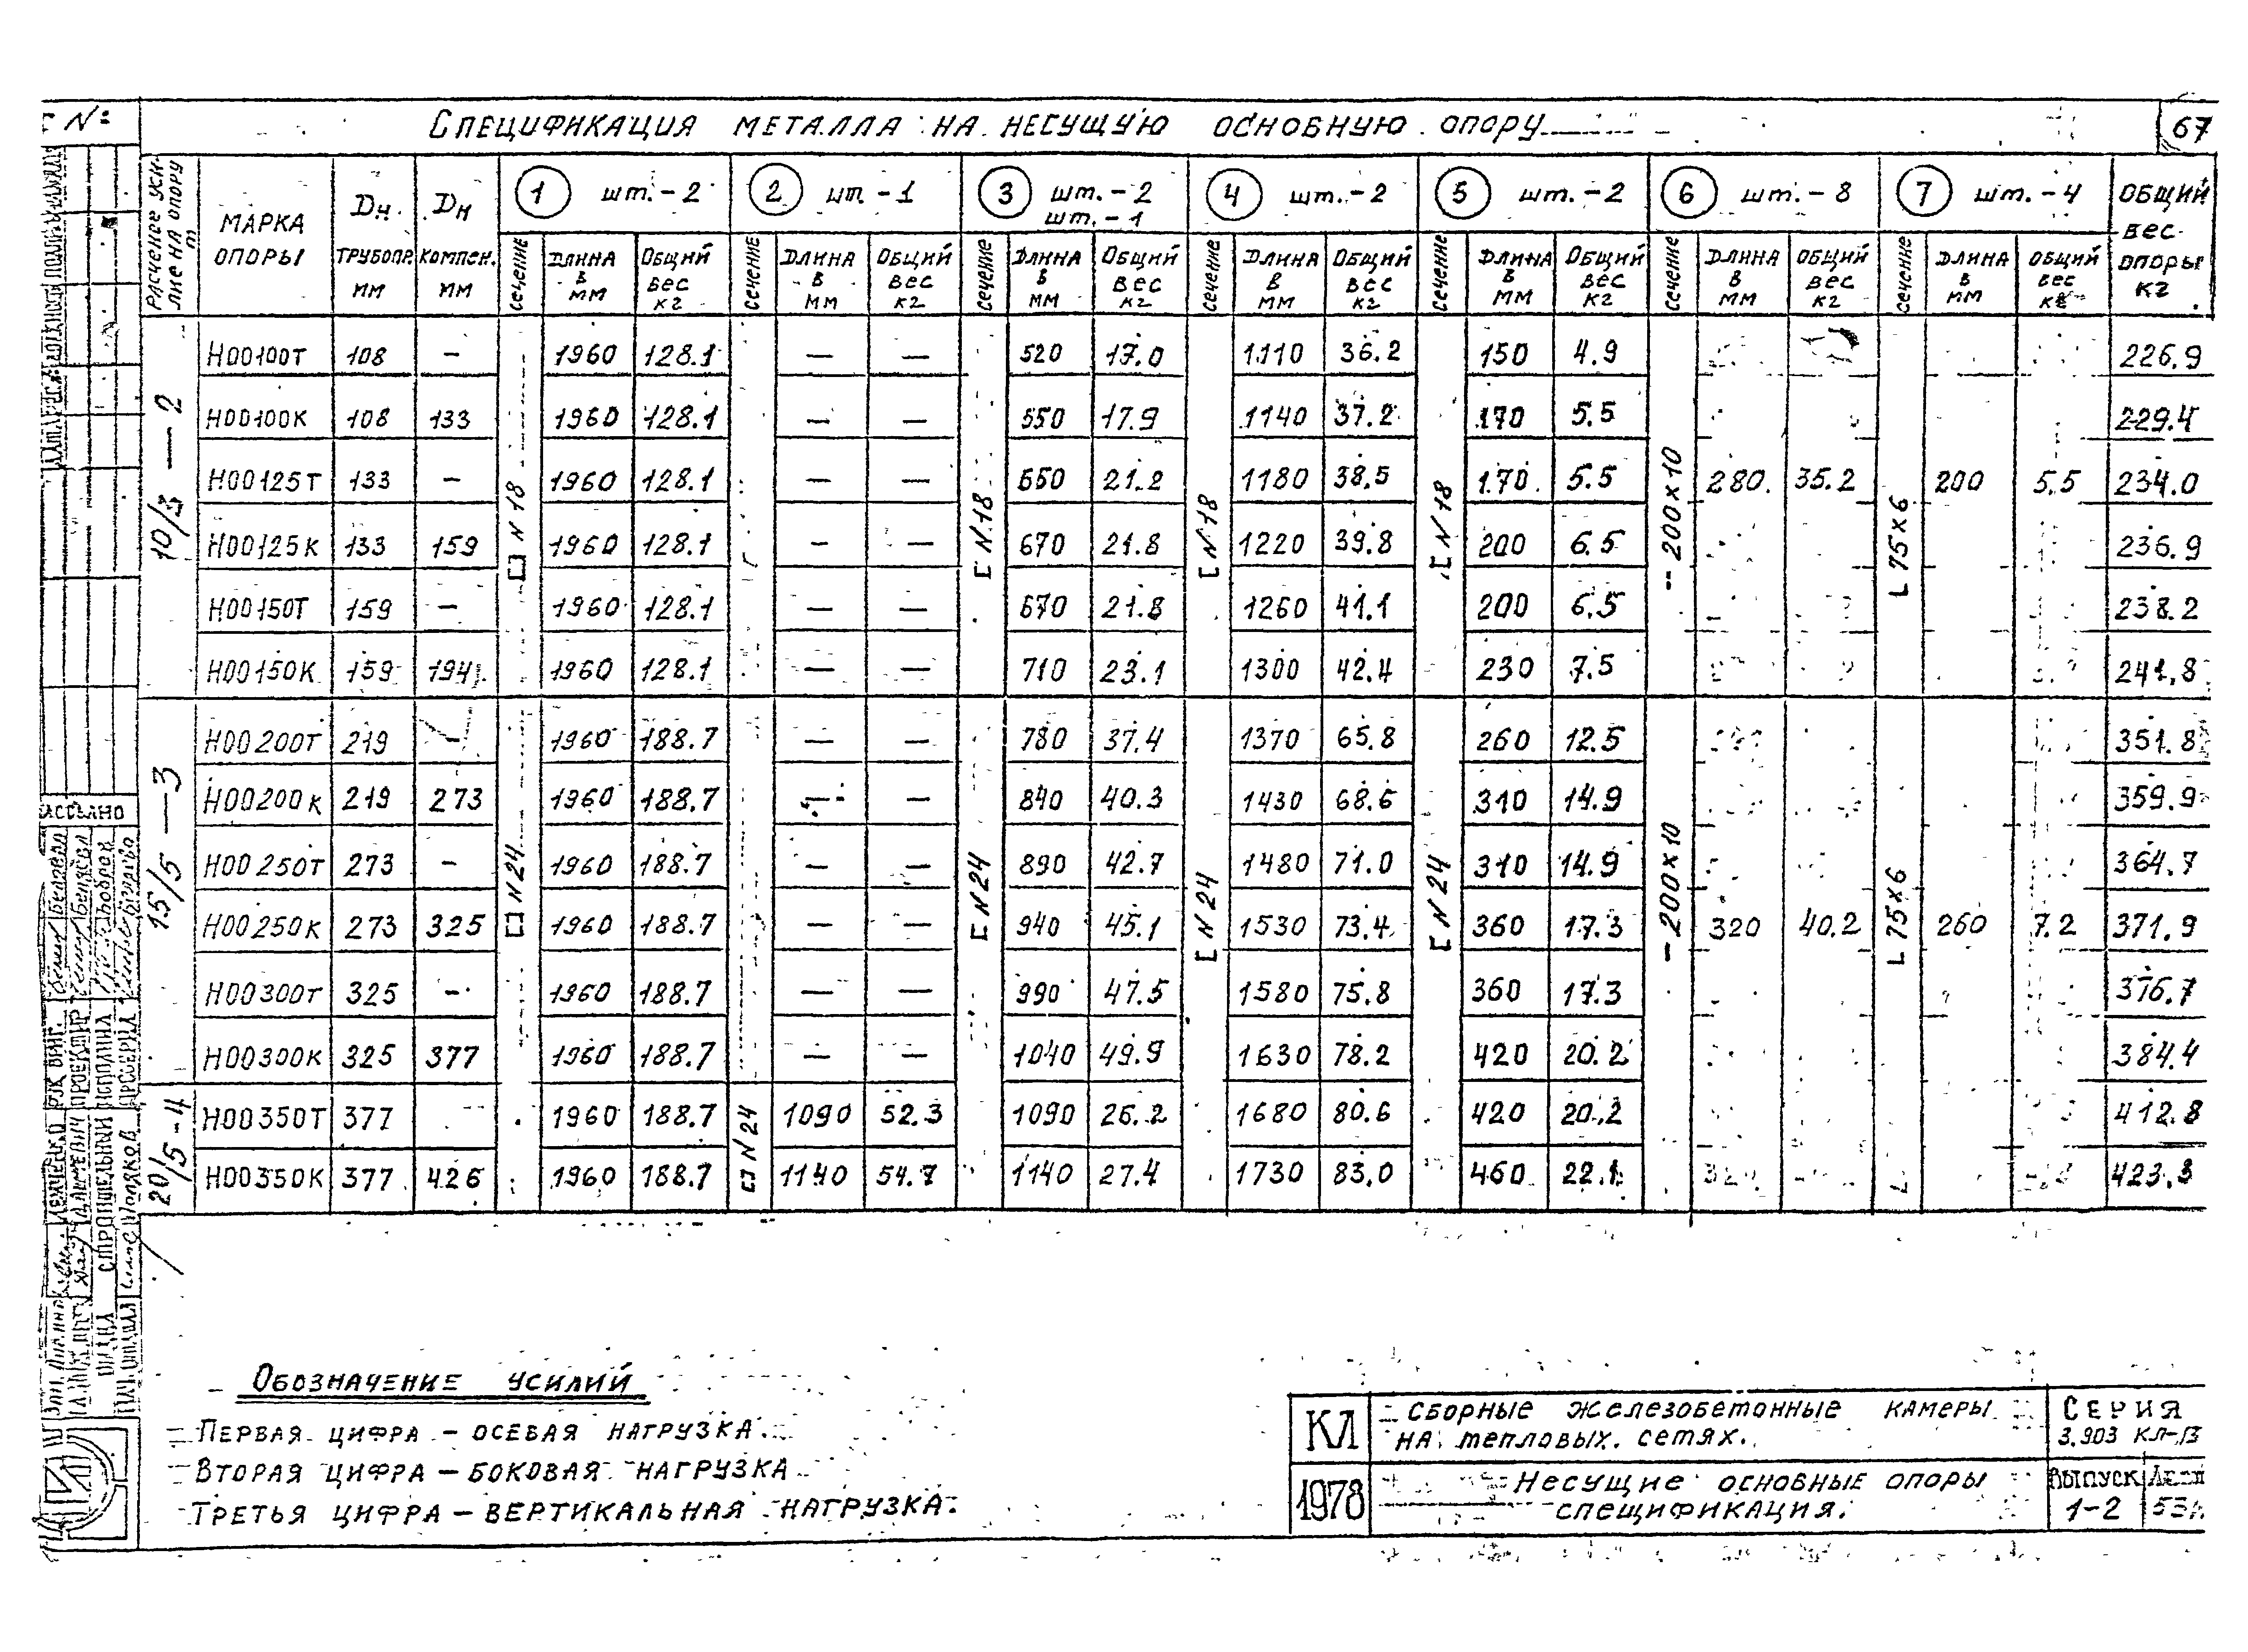 Спецификация металла на несущую основную опору
67
Расчетное усилие на опору т
Марка опоры
Dн трубопр. мм
Dн компен. мм
1 шт.-2
2 шт-1
3 шт.-2 шт.-1
4 шт.-2
5 шт.-2
6 шт.-8
7 шт.-4
Общий вес опоры кг
сечение длина в мм Общий вес кг
сечение длина в мм Общий вес кг
сечение длина в мм Общий вес кг
сечение длина в мм Общий вес кг
сечение длина в мм Общий вес кг
сечение длина в мм Общий вес кг
сечение длина в мм Общий вес кг
10/3 — 2
[] N 18
[ N 18
[ N 18
[ N 18
- 200×10
L 75×6
НОО100Т 108 — 1960 128.1 — — 520 17.0 1110 36.2 150 4.9 226.9
НОО100К 108 133 1960 128.1 — — 550 17.9 1140 37.2 170 5.5 229.4
НОО125Т 133 — 1960 128.1 — — 650 21.2 1180 38.5 170 5.5 280 35.2 200 5.5 234.0
НОО125К 133 159 1960 128.1 — — 670 21.8 1220 39.8 200 6.5 236.9
НОО150Т 159 — 1960 128.1 — — 670 21.8 1260 41.1 200 6.5 238.2
НОО150К 159 194 1960 128.1 — — 710 23.1 1300 42.4 230 7.5 241.8
15/5 — 3
[] N 24
[ N 24
[ N 24
[ N 24
- 200×10
L 75×6
НОО200Т 219 — 1960 188.7 — — 780 37.4 1370 65.8 260 12.5 351.8
НОО200К 219 273 1960 188.7 — — 840 40.3 1430 68.6 310 14.9 359.9
НОО250Т 273 — 1960 188.7 — — 890 42.7 1480 71.0 310 14.9 364.7
НОО250К 273 325 1960 188.7 — — 940 45.1 1530 73.4 360 17.3 320 40.2 260 7.2 371.9
НОО300Т 325 — 1960 188.7 — — 990 47.5 1580 75.8 360 17.3 376.7
НОО300К 325 377 1960 188.7 — — 1040 49.9 1630 78.2 420 20.2 384.4
20/5 - 4
[] N 24
НОО350Т 377 1960 188.7 1090 52.3 1090 26.2 1680 80.6 420 20.2 412.8
НОО350К 377 426 1960 188.7 1140 54.7 1140 27.4 1730 83.0 460 22.1 423.3
Обозначение усилий
Первая цифра – осевая нагрузка.
Вторая цифра – боковая нагрузка
Третья цифра – вертикальная нагрузка.
КЛ
1978
Сборные железобетонные камеры
на тепловых сетях.
Несущие основные опоры
спецификация.
Серия
3.903 КЛ-13
Выпуск
1-2
Лист
53